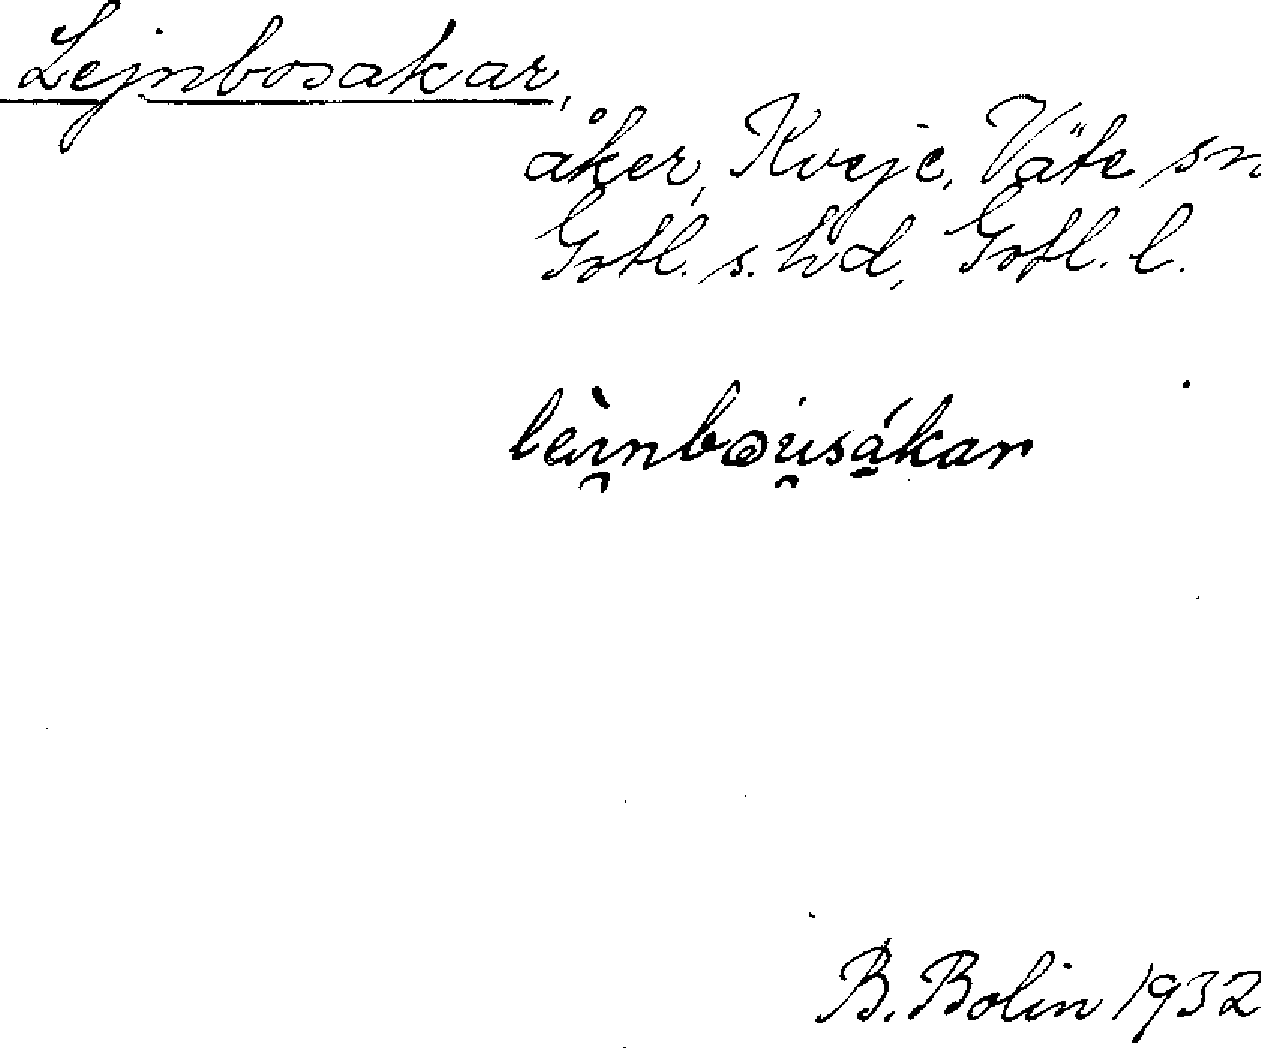 Lejnbosakar,
åker, Kveje, Väte sn
Gotl. s. hd, Gotl. l.
lèi̯nbou̯sá̱kar
B. Bolin 1932